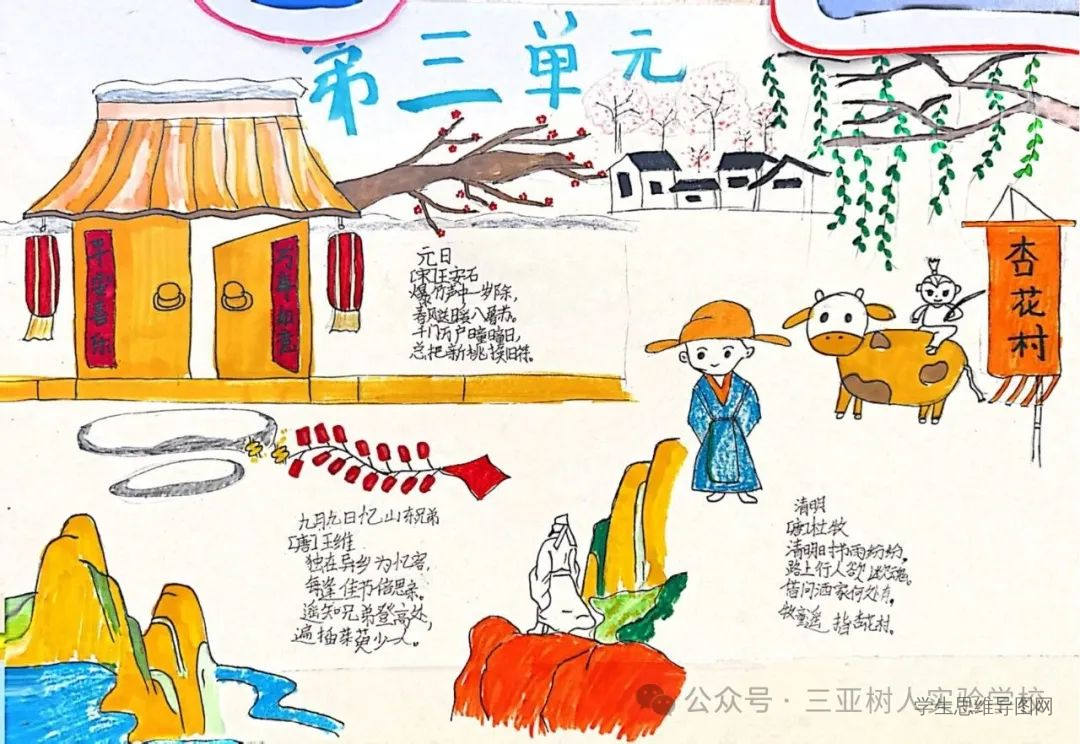 第三单元
平安喜乐
万事如意
元日
[宋]王安石
爆竹声中一岁除,
春风送暖入屠苏。
千门万户曈曈日,
总把新桃换旧符。
杏花村
九月九日忆山东兄弟
[唐]王维
独在异乡为忆客,
每逢佳节倍思亲。
遥知兄弟登高处,
遍插茱萸少一人。
清明
[唐]杜牧
清明时节雨纷纷,
路上行人欲断魂。
借问酒家何处有,
牧童遥指杏花村。
公众号·三亚树人实验学校
学生思维导图网